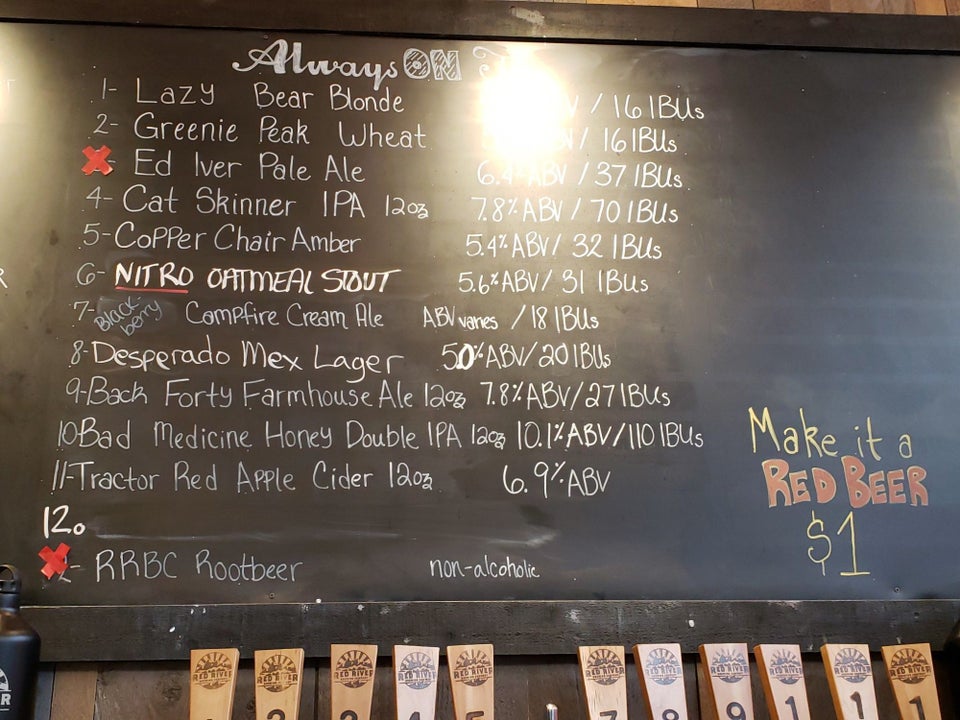 Always ON
1- Lazy Bear Blonde / 16 IBUs
2- Greenie Peak Wheat / 16 IBUs
Ed Iver Pale Ale 6.4% ABV / 37 IBUs
4- Cat Skinner IPA 12oz 7.8% ABV / 70 IBUs
5- Copper Chair Amber 5.4% ABV / 32 IBUs
6- NITRO OATMEAL STOUT 5.6% ABV / 31 IBUs
7- Blackberry Campfire Cream Ale ABV varies / 18 IBUs
8- Desperado Mex Lager 5.0% ABV / 20 IBUs
9- Back Forty Farmhouse Ale 12oz 7.8% ABV / 27 IBUs
10 Bad Medicine Honey Double IPA 12oz 10.1% ABV / 110 IBUs
11- Tractor Red Apple Cider 12oz 6.9% ABV
12.
RRBC Rootbeer non-alcoholic
Make it a
RED BEER
$1
RED RIVER RED RIVER RED RIVER RED RIVER RED RIVER RED RIVER RED RIVER RED RIVER RED RIVER RED RIVER RED RIVER